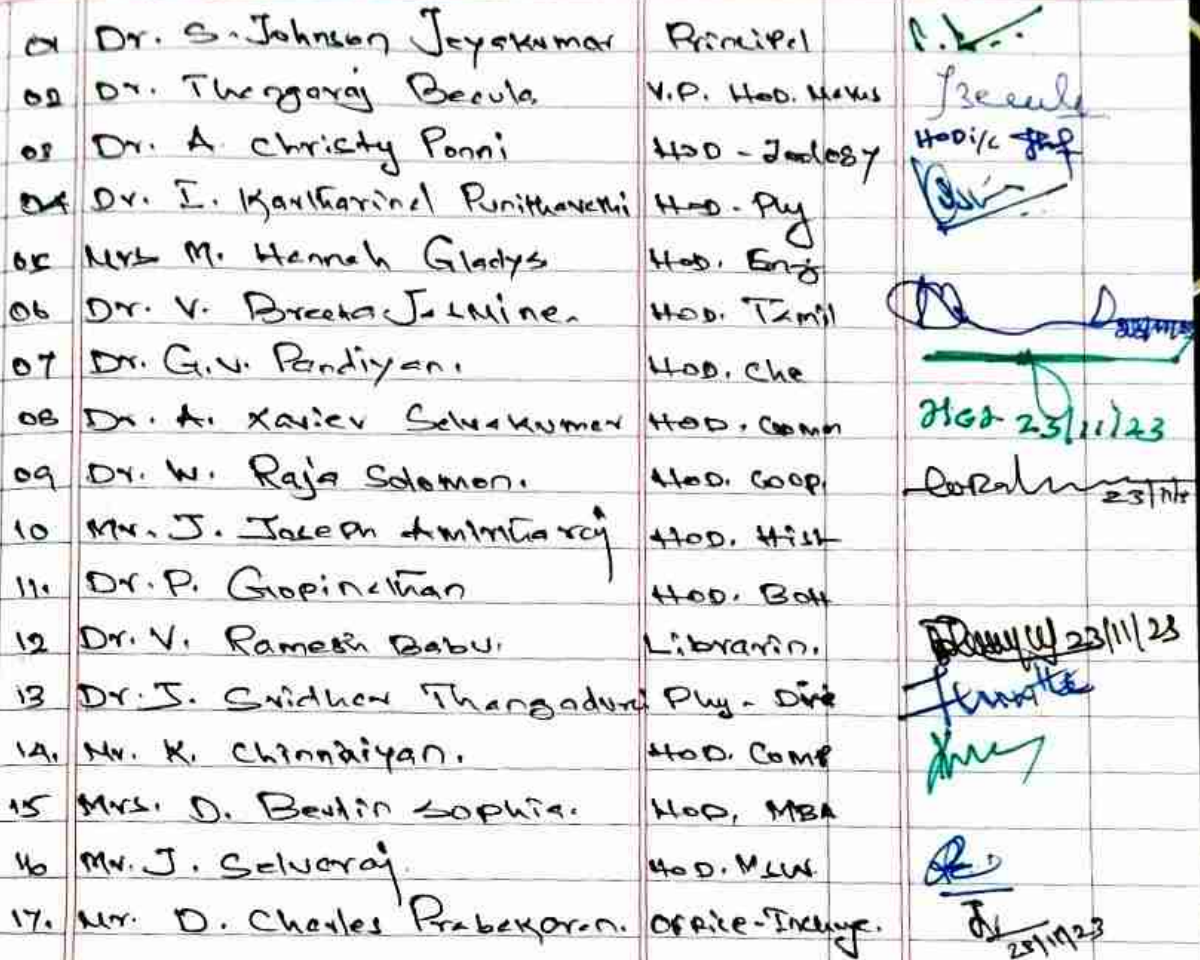 01 Dr. S. Johnson Jeyakumar Principel
02 Dr. Thangaraj Beaula V.P. HoD. Maths Beaula
03 Dr. A. Christy Ponni HOD - Zoology HOD i/c
04 Dr. I. Kartharinal Punithavathi HoD. Phy
05 Mrs M. Hannah Gladys HoD. Eng
06 Dr. V. Breeta Jasmine. HOD. Tamil
07 Dr. G.V. Pandiyan. HOD. Che
08 Dr. A. Xavier Selvakumar HOD. Comm 23/11/23
09 Dr. W. Raja Solomon. HOD. Coop
10 Mr. J. Joseph Amirtharaj HOD. Hist
11. Dr. P. Gopinathan HOD. Bot
12 Dr. V. Ramesh Babu. Librarin. 23/11/23
13 Dr. J. Sridhar Thangadurai Phy - Dire
14. Mr. K. Chinnaiyan. HOD. Comp
15 Mrs. D. Berlin Sophia. HOD, MBA
16 Mr. J. Selvaraj HOD. MSW
17. Mr. D. Charles Prabakaran. Office-Incharge.